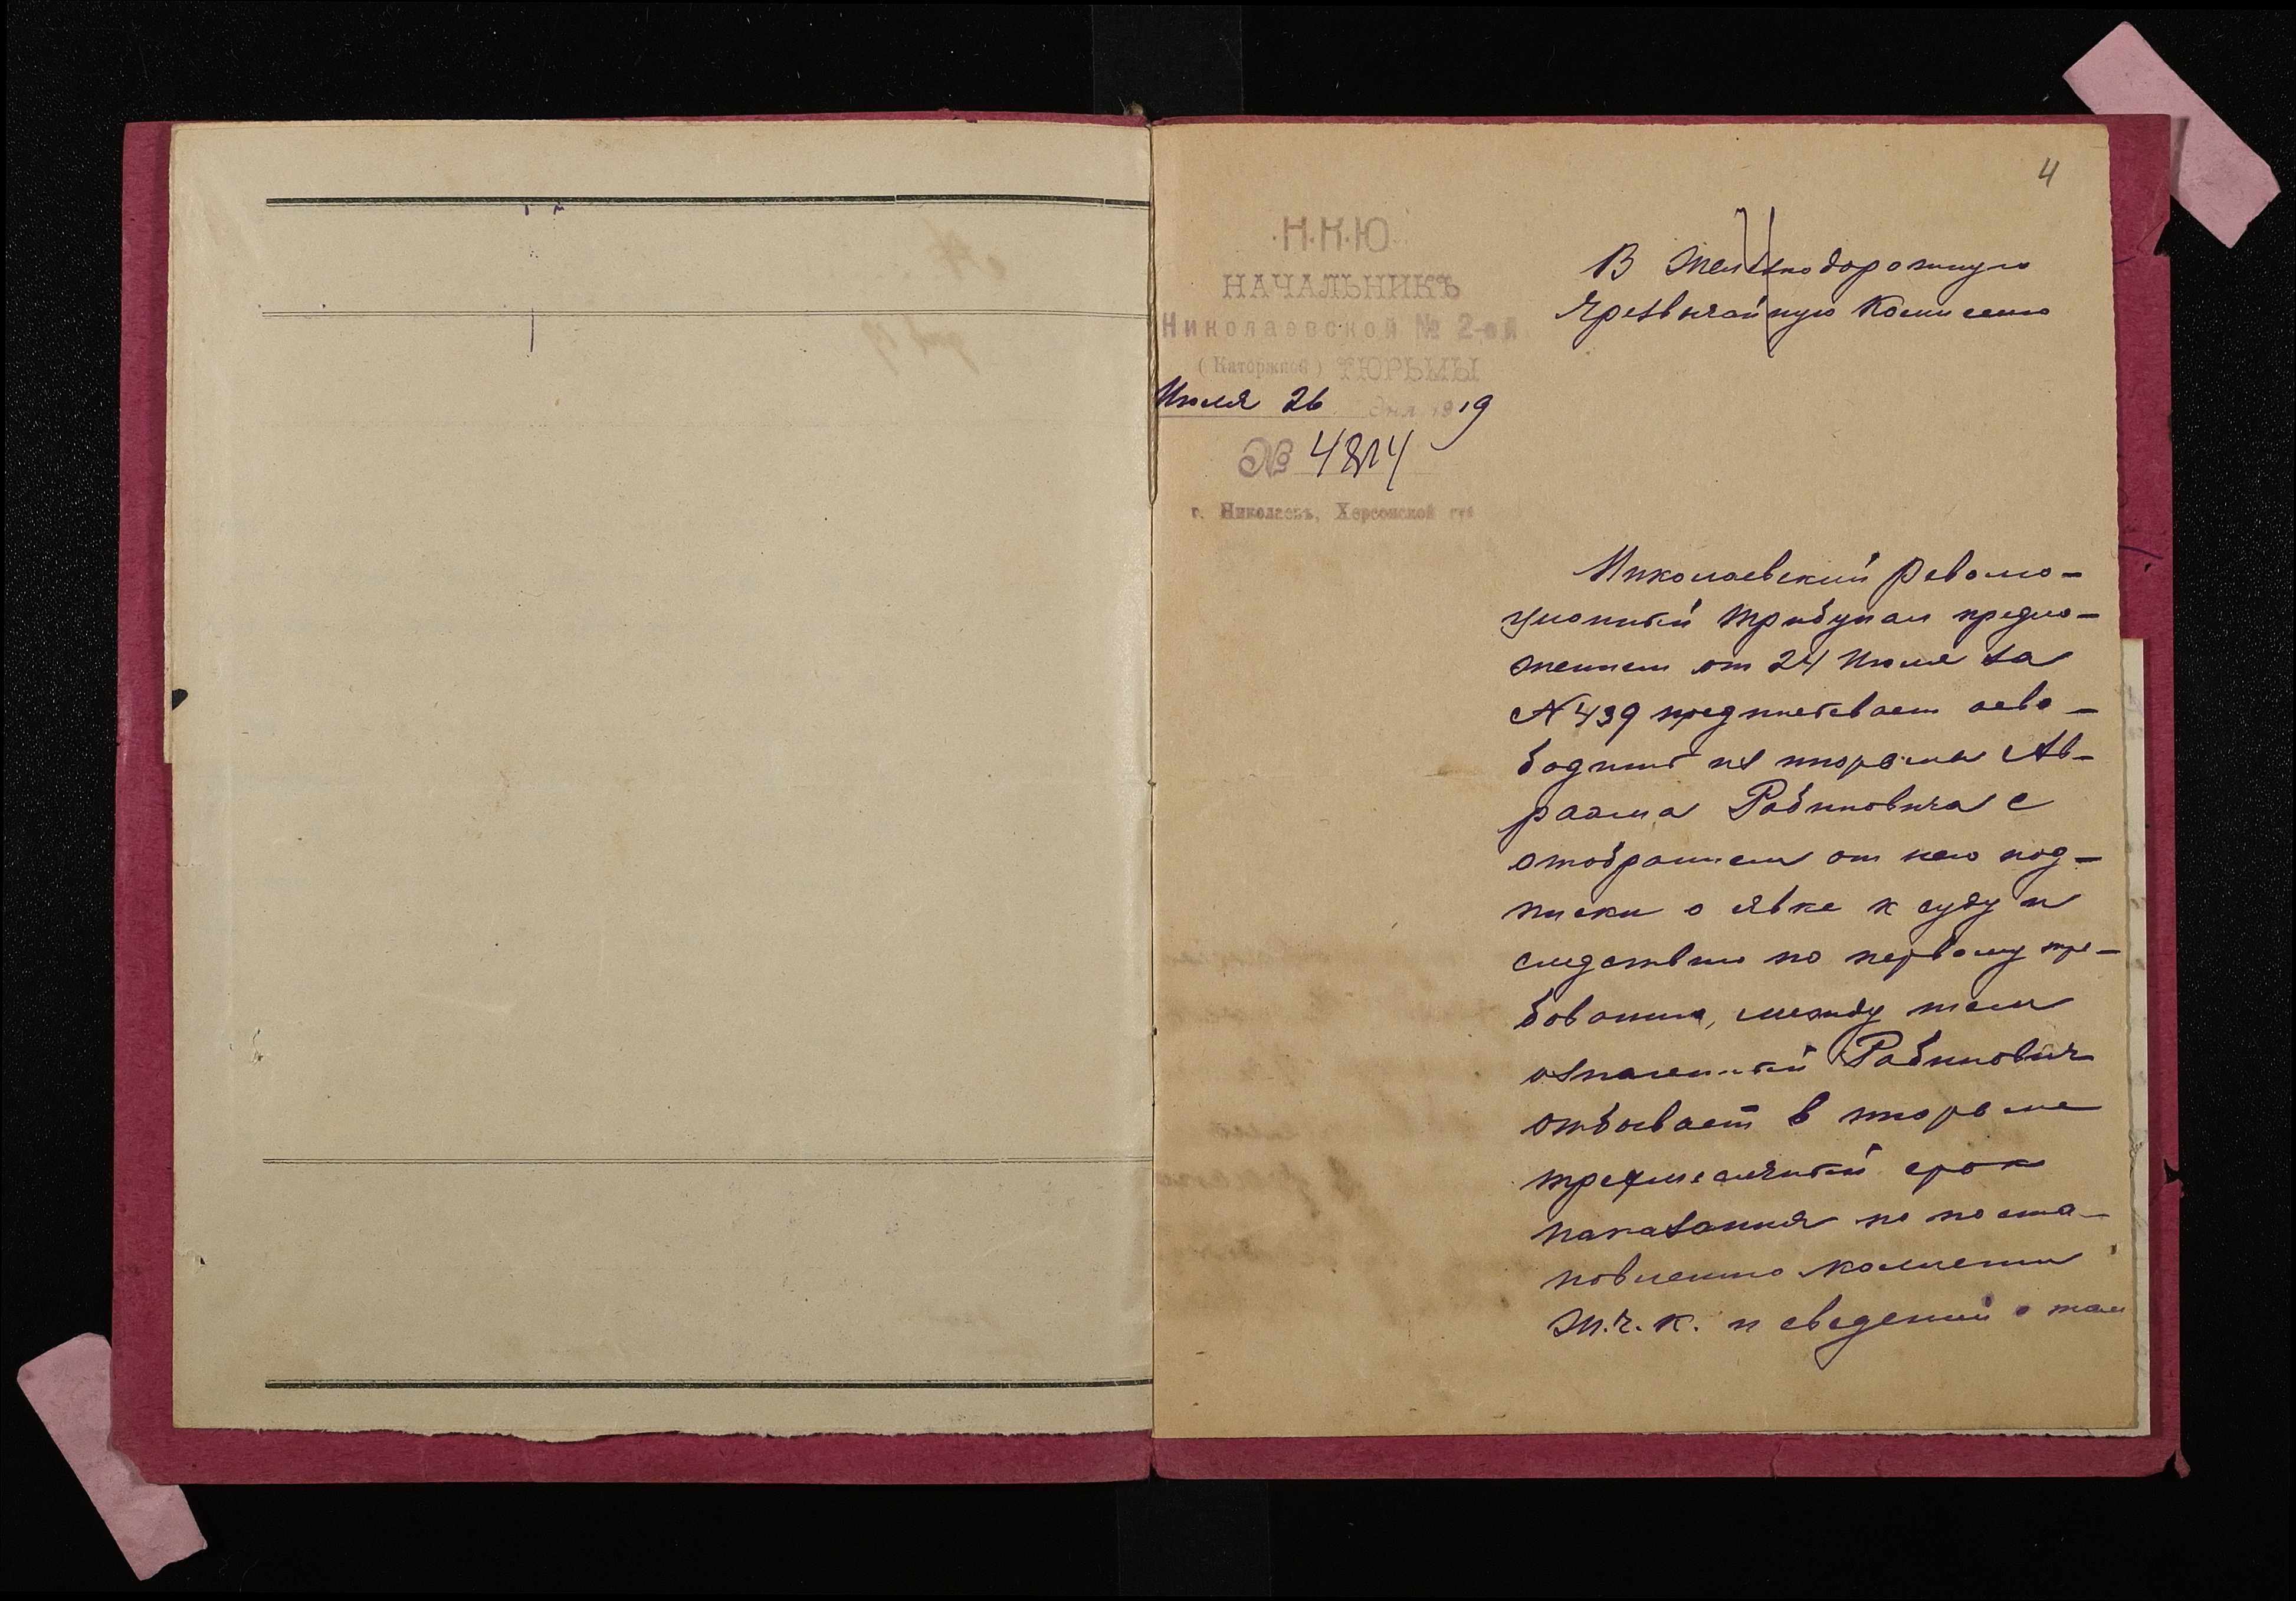 4
Н.К.Ю.
НАЧАЛЬНИКЪ
Николаевской № 2-ой
(Каторжной) ТЮРЬМЫ
Июля 26 дня 1919
№ 4814
г. Николаевъ, Херсонской губ
В Железнодорожную
Чрезвычайную Комиссию
Николаевский Револю-
ционный Трибунал предло-
жением от 24 Июля за
№ 439 предписывает осво-
бодить из тюрьмы Ав-
раама Рабиновича с
отобранием от него под-
писки о явке к суду и
следствию по первому тре-
бованию, между тем
означенный Рабинович
отбывает в тюрьме
трехмесячный срок
наказания по поста-
новлению комиссии
Ж.Ч.К. и сведений о том